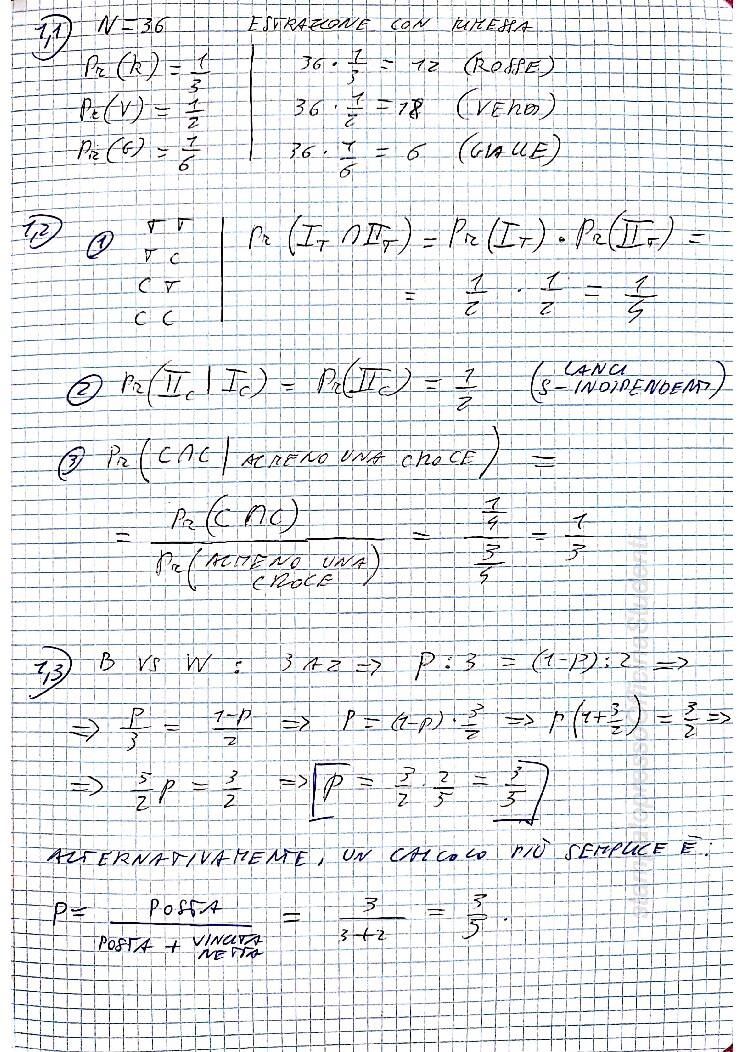 1,1) N = 36 ESTRAZIONE CON RIMESSA
Pr(R) = 1/3 | 36 · 1/3 = 12 (ROSSE)
Pr(V) = 1/2 | 36 · 1/2 = 18 (VERDI)
Pr(G) = 1/6 | 36 · 1/6 = 6 (GIALLE)
1,2) ① T T | Pr(I_T ∩ II_T) = Pr(I_T) · Pr(II_T) =
T C
C T = 1/2 · 1/2 = 1/4
C C
② Pr(II_C | I_C) = Pr(II_C) = 1/2 (LANCI S-INDIPENDENTI)
③ Pr(C∩C | ALMENO UNA CROCE) =
= Pr(C∩C) / Pr(ALMENO UNA CROCE) = (1/4) / (3/4) = 1/3
1,3) B VS W : 3 A 2 => P : 3 = (1-P) : 2 =>
=> P/3 = (1-P)/2 => P = (1-P) · 3/2 => P(1+3/2) = 3/2 =>
=> 5/2 P = 3/2 => P = 3/2 · 2/5 = 3/5
ALTERNATIVAMENTE, UN CALCOLO PIÙ SEMPLICE È:
P = POSTA / (POSTA + VINCITA NETTA) = 3 / (3+2) = 3/5 .